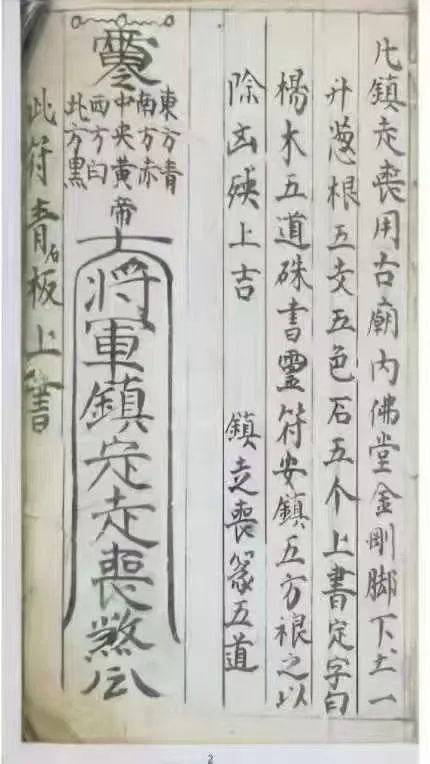 凡鎮走喪用古廟内佛堂金剛脚下土一
升葱根五支五色石五个上書定字曰
楊木五道硃書靈符安鎮五方禳之以
除凶殃上吉　鎮走喪篆五道
東方青
南方赤
中央黃帝
西方白
北方黑
將軍鎮定走喪煞
此符青石板上書
2